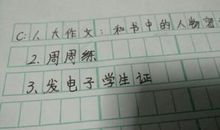 C:1.大作文:和书中的人物
2.周周练
3.发电子学生证